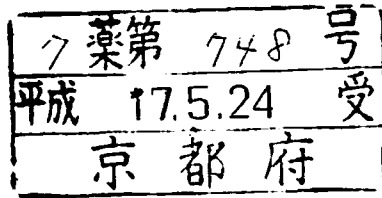 7薬第 748 号
平成 17.5.24 受
京都府